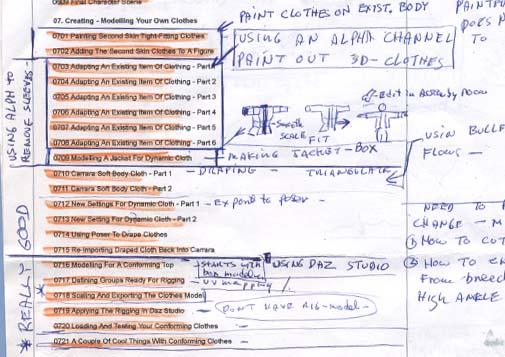 0709 Final Character Scene
07. Creating - Modelling Your Own Clothes
0701 Painting Second Skin Tight-Fitting Clothes
0702 Adding The Second Skin Clothes To A Figure
0703 Adapting An Existing Item Of Clothing - Part 1
0704 Adapting An Existing Item Of Clothing - Part 2
0705 Adapting An Existing Item Of Clothing - Part 3
0706 Adapting An Existing Item Of Clothing - Part 4
0707 Adapting An Existing Item Of Clothing - Part 5
0708 Adapting An Existing Item Of Clothing - Part 6
0709 Modelling A Jacket For Dynamic Cloth
0710 Carrara Soft Body Cloth - Part 1
0711 Carrara Soft Body Cloth - Part 2
0712 New Settings For Dynamic Cloth - Part 1
0713 New Setting For Dynamic Cloth - Part 2
0714 Using Poser To Drape Clothes
0715 Re-Importing Draped Cloth Back Into Carrara
0716 Modelling For A Conforming Top
0717 Defining Groups Ready For Rigging
0718 Scaling And Exporting The Clothes Model
0719 Applying The Rigging In Daz Studio
0720 Loading And Testing Your Conforming Clothes
0721 A Couple Of Cool Things With Conforming Clothes
PAINT CLOTHES ON EXIST. BODY
USING AN ALPHA CHANNEL
PAINT OUT 3D-CLOTHES
Edit in Assembly Room
Smooth
SCALE
FIT
MAKING JACKET - BOX
DRAPING - TRIANGULATE
Export to poser -
STARTS with
box modeler
UV mapping
USING DAZ STUDIO
DON'T HAVE RIG-model-
USING ALPH TO
REMOVE SLEEVES
* REALLY GOOD
DOES N
TO
USIN BULLE
FLOWS -
NEED TO
CHANGE - M
① HOW TO CUT
② HOW TO
From
HIGH ANKLE